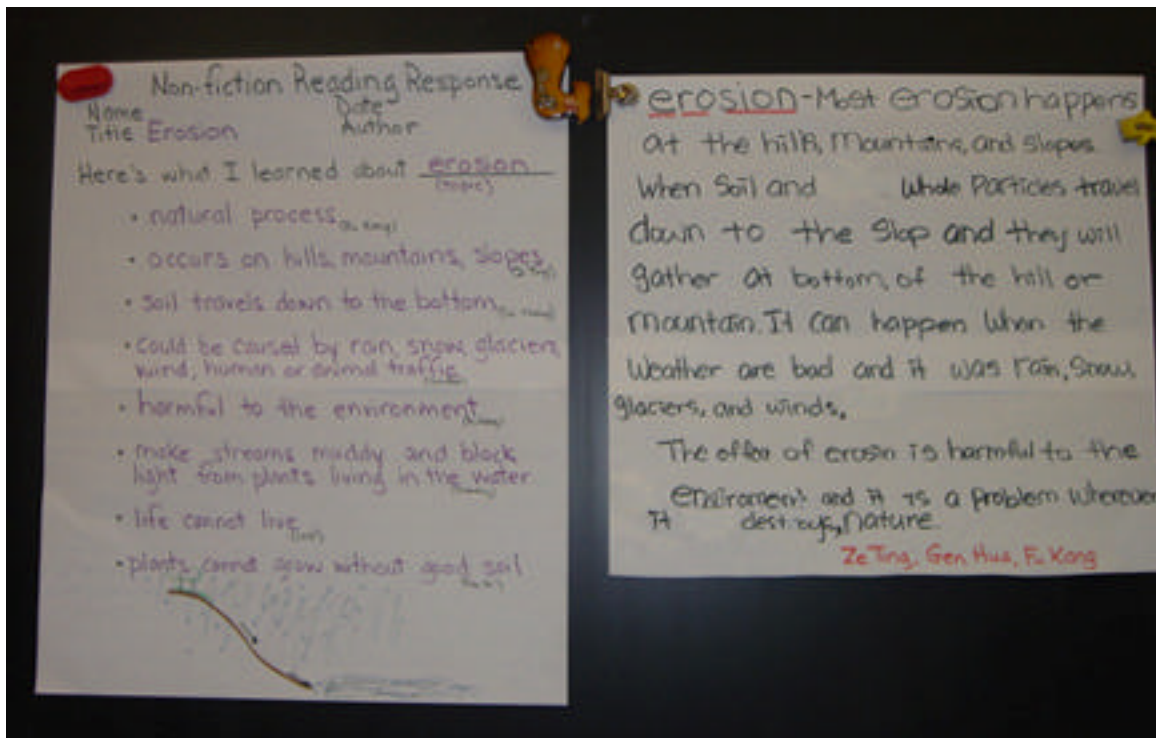 Non-fiction Reading Response
Name Date
Title Erosion Author
Here's what I learned about erosion
(topic)
• natural process
• occurs on hills, mountains, slopes
• soil travels down to the bottom
• could be caused by rain, snow, glaciers,
wind, human or animal traffic
• harmful to the environment
• make streams muddy and block
light from plants living in the water
• life cannot live
• plants cannot grow without good soil
erosion-Most erosion happens
at the hills, Mountains, and slopes
When Soil and Whole Particles travel
down to the Slop and they will
gather at bottom, of the hill or
mountain. It can happen when the
weather are bad and it was rain, Snow,
glaciers, and winds.
The effex of erosin is harmful to the
enviroment and it is a problem wherever
It destroys nature.
Ze Ting, Gen Hua, Fu Kang